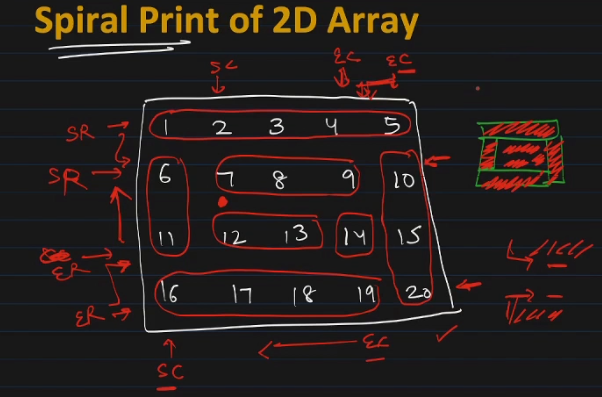 Spiral Print of 2D Array
SC EC EC
SR 1 2 3 4 5
SR 6 7 8 9 10
11 12 13 14 15
ER
16 17 18 19 20
ER
EC
SC